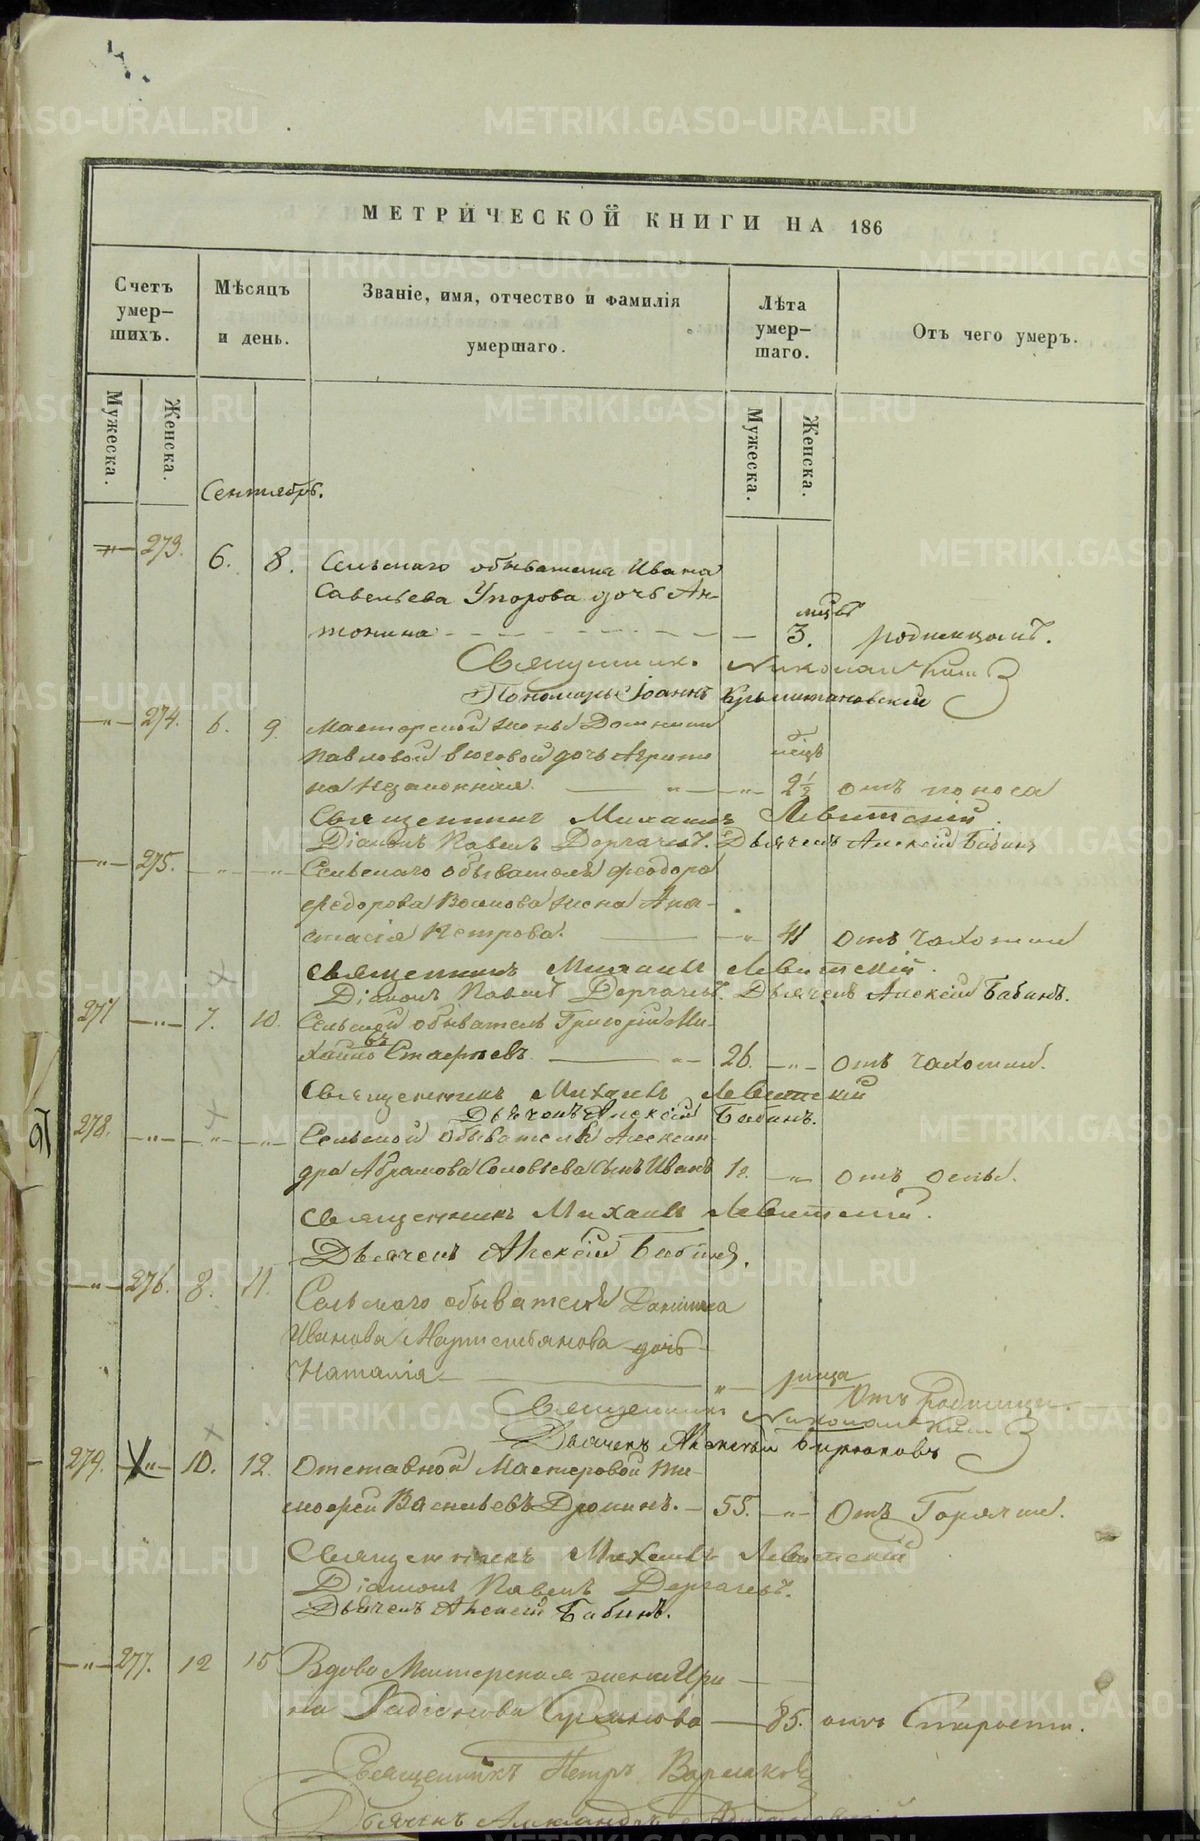 МЕТРИЧЕСКОЙ КНИГИ НА 186
Счетъ умер-шихъ.
Мѣсяцъ и день.
Званіе, имя, отчество и фамилія умершаго.
Лѣта умер-шаго.
Отъ чего умеръ.
Мужеска.
Женска.
Мужеска.
Женска.
Сентябрь.
273. 6. 8. Сельскаго обывателя Ивана
Савельева Упорова дочь Ан-
тонина 3. мѣсц родимцомъ.
Священникъ Николай
Пономарь Іоаннъ
274. 6. 9. Мастерской жены Домники
Павловой дочь
незаконная 2½ мѣсц отъ поноса
Священникъ Михаилъ Левитскій.
Діаконъ Павелъ Дергачевъ. Дьячекъ Алексій Бабинъ
275. Сельскаго обывателя Феодора
Федорова жена Ана-
стасія Петрова. 41 отъ чахотки
Священникъ Михаилъ Левитскій.
Діаконъ Павелъ Дергачевъ. Дьячекъ Алексій Бабинъ.
277 7. 10. Сельскій обыватель Григорій Ми-
хайловъ 26. отъ чахотки.
Священникъ Михаилъ Левитскій
Дьячекъ Алексій Бабинъ.
278. Сельскаго обывателя Алексан-
дра Абрамова Соловьева сынъ Иванъ отъ оспы.
Священникъ Михаилъ Левитскій.
Дьячекъ Алексій Бабинъ.
276. 8. 11. Сельскаго обывателя Даниила
Иванова Мартемьянова дочь
Наталія Отъ родимца.
Священникъ Николай
Дьячекъ Алексѣй Бирюковъ
279. 10. 12. Отставной мастеровой Ти-
мофей Васильевъ 55. отъ Горячки.
Священникъ Михаилъ Левитскій
Діаконъ Павелъ Дергачевъ.
Дьячекъ Алексій Бабинъ.
277. 12 15 Вдова Мастерская жена Ири-
на 85. отъ Старости.
Священникъ Петръ
Дьячекъ Александръ
METRIKI.GASO-URAL.RU